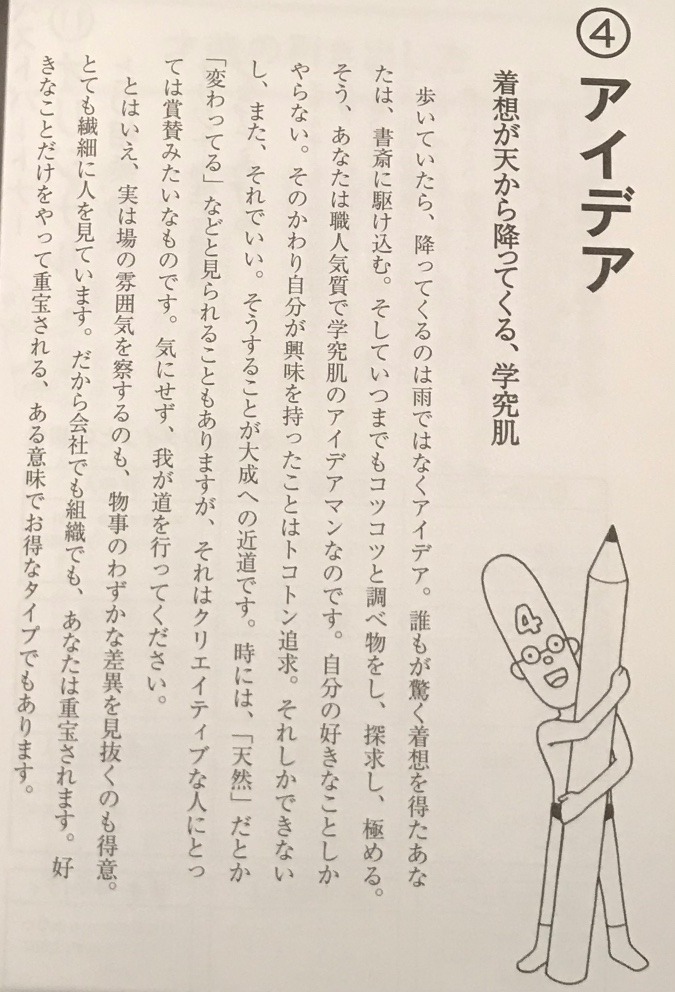 ④アイデア
着想が天から降ってくる、学究肌
歩いていたら、降ってくるのは雨ではなくアイデア。誰もが驚く着想を得たあな
たは、書斎に駆け込む。そしていつまでもコツコツと調べ物をし、探求し、極める。
そう、あなたは職人気質で学究肌のアイデアマンなのです。自分の好きなことしか
やらない。そのかわり自分が興味を持ったことはトコトン追求。それしかできない
し、また、それでいい。そうすることが大成への近道です。時には、「天然」だとか
「変わってる」などと見られることもありますが、それはクリエイティブな人にとっ
ては賞賛みたいなものです。気にせず、我が道を行ってください。
とはいえ、実は場の雰囲気を察するのも、物事のわずかな差異を見抜くのも得意。
とても繊細に人を見ています。だから会社でも組織でも、あなたは重宝されます。好
きなことだけをやって重宝される、ある意味でお得なタイプでもあります。
4